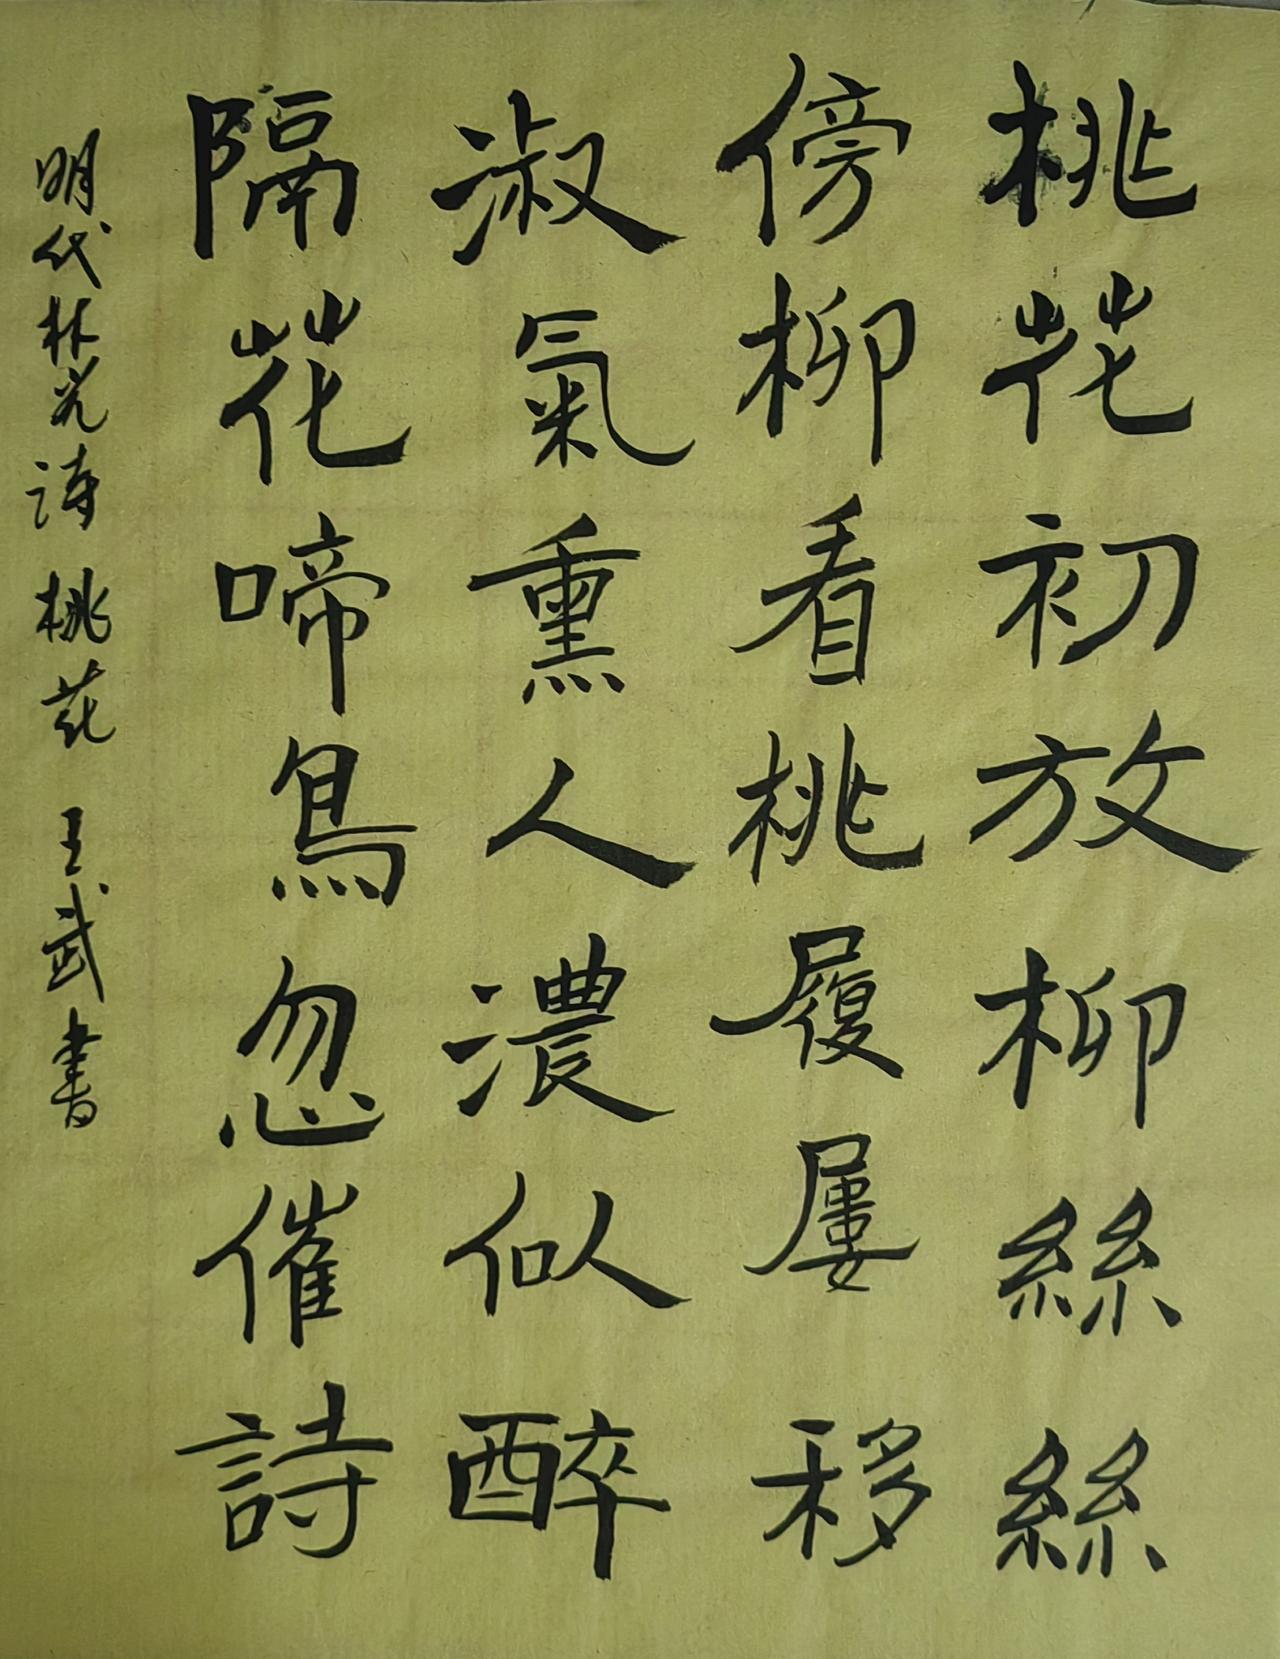 桃花初放柳絲絲
傍柳看桃履屢移
淑氣熏人濃似醉
隔花啼鳥忽催詩
明代林光诗桃花 王武書